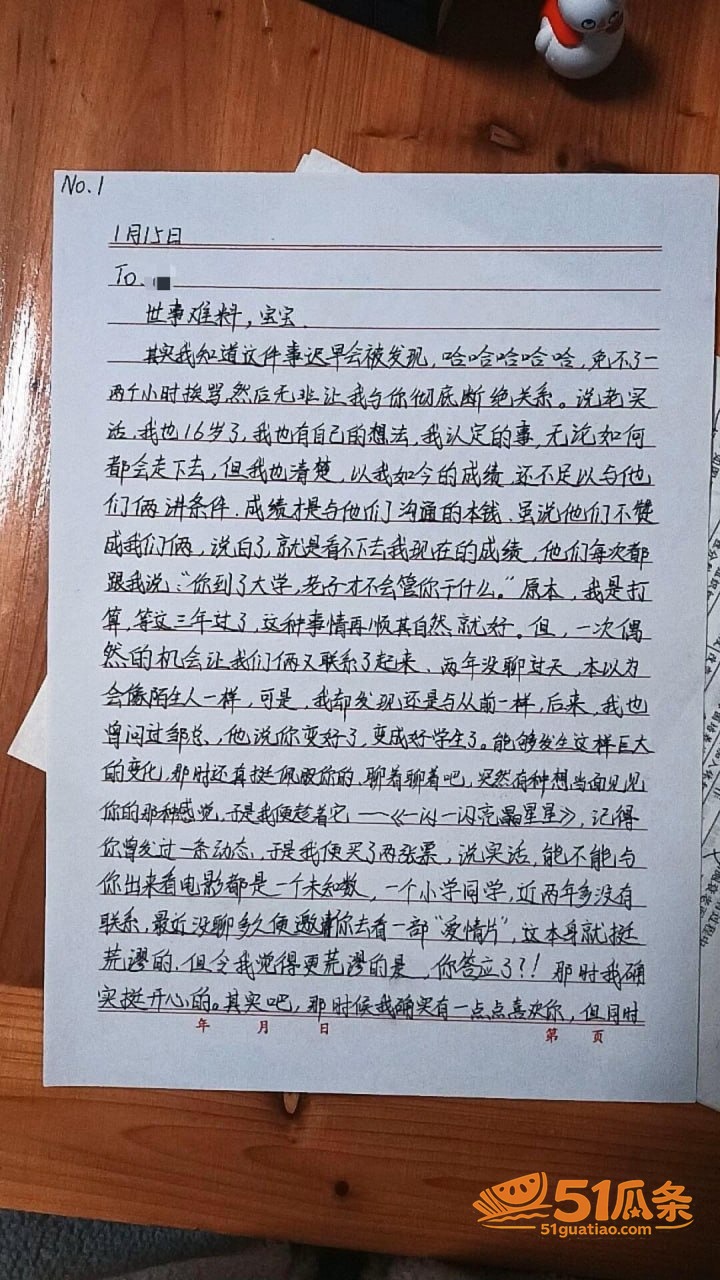 No.1
1月15日
To.
世事难料，宝宝.
其实我知道这件事迟早会被发现，哈哈哈哈哈，免不了一
两个小时挨骂,然后无非让我与你彻底断绝关系。说老实
话，我也16岁了，我也有自己的想法，我认定的事，无论如何
都会走下去，但我也清楚，以我如今的成绩，还不足以与他
们俩讲条件，成绩才是与他们沟通的本钱，虽说他们不赞
成我们俩，说白了，就是看不下去我现在的成绩，他们每次都
跟我说：“你到了大学，老子才不会管你干什么。”原本，我是打
算，等这三年过了，这种事情再顺其自然就好。但，一次偶
然的机会让我们俩又联系了起来，两年没聊过天，本以为
会像陌生人一样，可是，我却发现还是与从前一样，后来，我也
曾问过邹总，他说你变好了，变成好学生了。能够发生这样巨大
的变化，那时还真挺佩服你的，聊着聊着吧，突然有种想当面见见
你的那种感觉，于是我便趁着它——《一闪一闪亮晶星星》，记得
你曾发过一条动态，于是我便买了两张票，说实话，能不能与
你出来看电影都是一个未知数，一个小学同学，近两年多没有
联系，最近没聊多久便邀请你去看一部“爱情片”，这本身就挺
荒谬的，但令我觉得更荒谬的是，你答应了？！那时我确
实挺开心的。其实吧，那时候我确实有一点点喜欢你，但同时
年 月 日
第 页
51瓜条
51guatiao.com